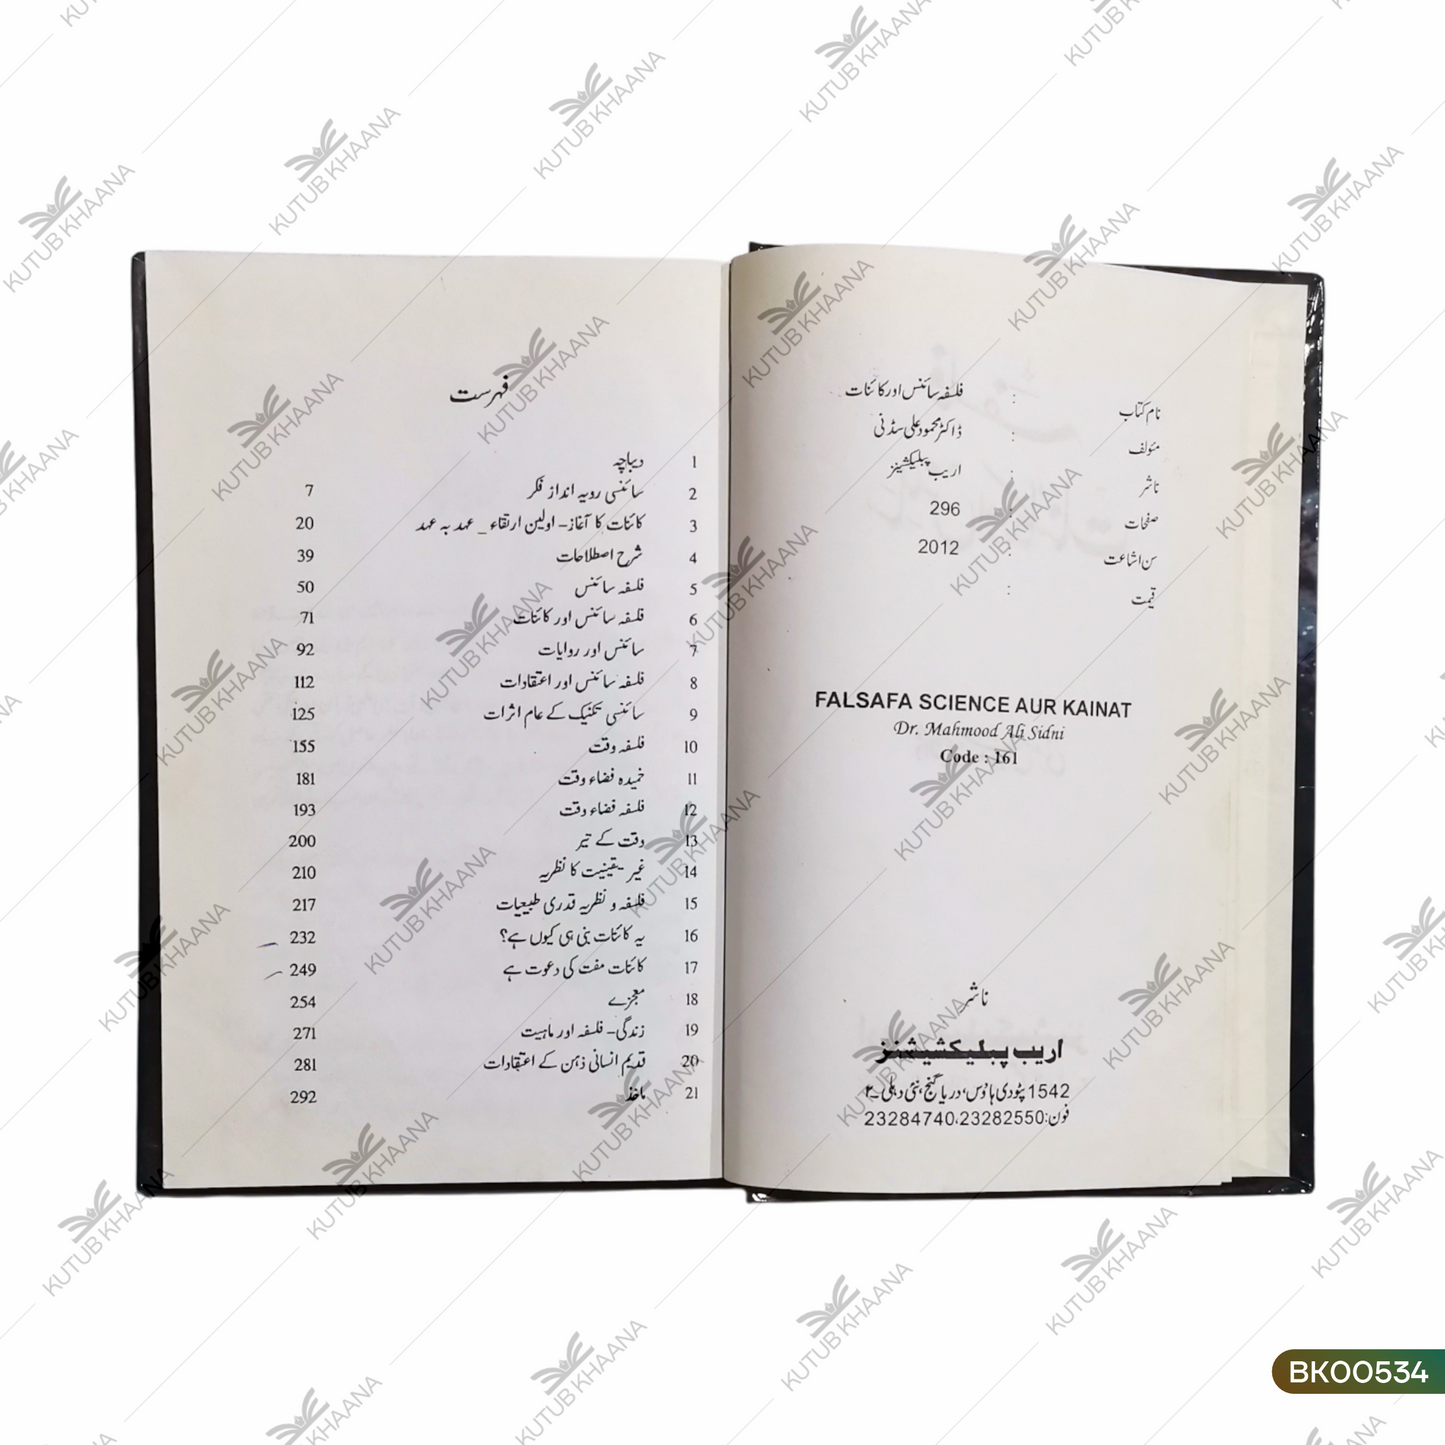 نام کتاب : فلسفہ سائنس اور کائنات
مئولف : ڈاکٹر محمود علی سڈنی
ناشر : اریب پبلیکشینز
صفحات : 296
سن اشاعت : 2012
قیمت :
FALSAFA SCIENCE AUR KAINAT
Dr. Mahmood Ali Sidni
Code : 161
ناشر
اریب پبلیکشیشنز
1542 پٹودی ہاؤس، دریا گنج، نئی دہلی۔۲
فون:23282550،23284740
فہرست
1 دیباچہ
2 سائنسی رویہ انداز فکر 7
3 کائنات کا آغاز- اولین ارتقاء _ عہد بہ عہد 20
4 شرح اصطلاحات 39
5 فلسفہ سائنس 50
6 فلسفہ سائنس اور کائنات 71
7 سائنس اور روایات 92
8 فلسفہ سائنس اور اعتقادات 112
9 سائنسی تکنیک کے عام اثرات 125
10 فلسفہ وقت 155
11 خمیدہ فضاء وقت 181
12 فلسفہ فضاء وقت 193
13 وقت کے تیر 200
14 غیر یقینیت کا نظریہ 210
15 فلسفہ و نظریہ قدری طبیعیات 217
16 یہ کائنات بنی ہی کیوں ہے؟ 232
17 کائنات مفت کی دعوت ہے 249
18 معجزے 254
19 زندگی- فلسفہ اور ماہیت 271
20 قدیم انسانی ذہن کے اعتقادات 281
21 ماخذ 292
KUTUB KHAANA
BK00534